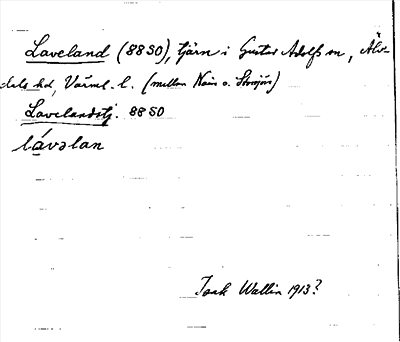 Laveland (88 SO), tjärn i Gustav Adolfs sn, Älv-
dals hd, Värml. l. (mellan Näin o. Storsjön)
Lavelandstj. 88 SO
lávəlan
Isak Wallin 1913?